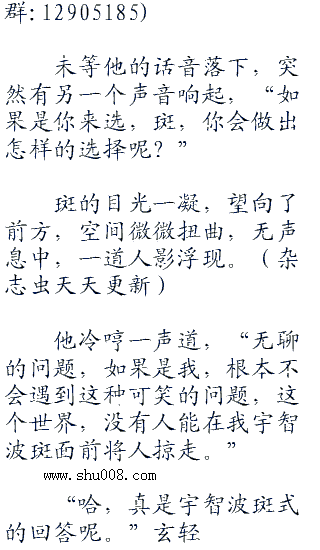 群: 12905185)
未等他的话音落下，突
然有另一个声音响起，“如
果是你来选，斑，你会做出
怎样的选择呢？”
斑的目光一凝，望向了
前方，空间微微扭曲，无声
息中，一道人影浮现。（杂
志虫天天更新）
他冷哼一声道，“无聊
的问题，如果是我，根本不
会遇到这种可笑的问题，这
个世界，没有人能在我宇智
波斑面前将人掠走。”
www.shu008.com
“哈，真是宇智波斑式
的回答呢。”玄轻